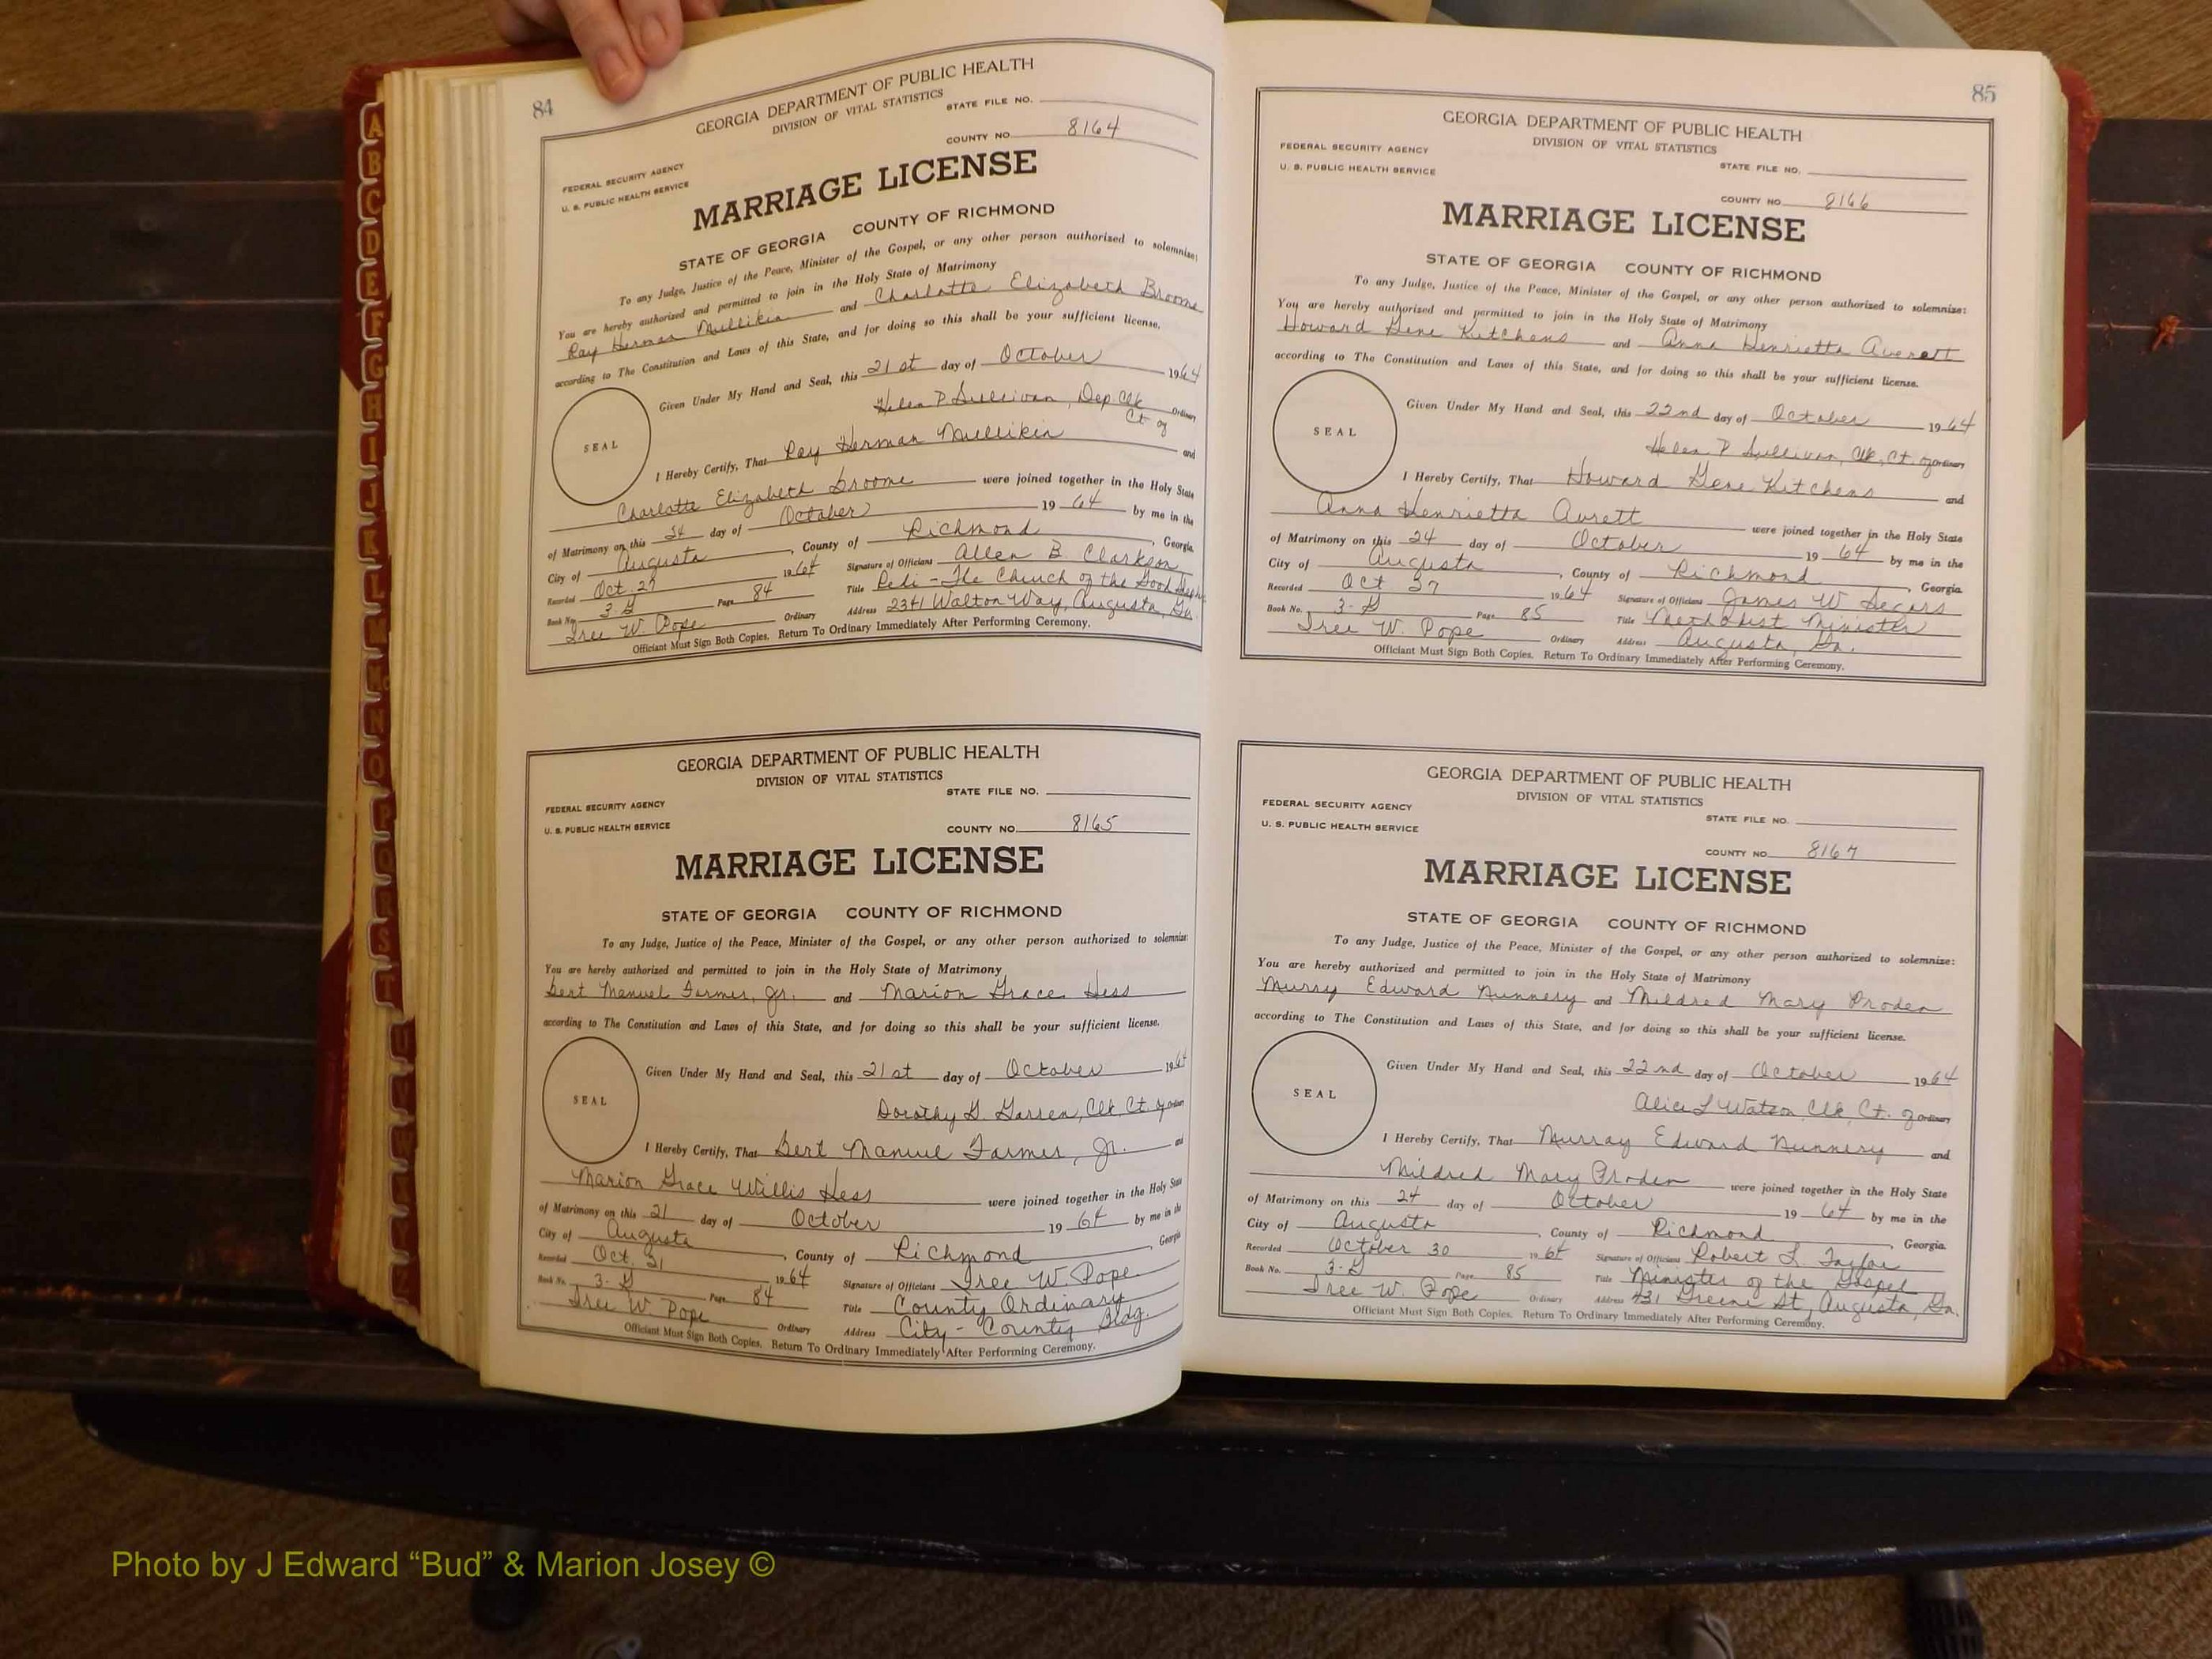 84
GEORGIA DEPARTMENT OF PUBLIC HEALTH
DIVISION OF VITAL STATISTICS
STATE FILE NO.
COUNTY NO. 8164
FEDERAL SECURITY AGENCY
U. S. PUBLIC HEALTH SERVICE
MARRIAGE LICENSE
STATE OF GEORGIA COUNTY OF RICHMOND
To any Judge, Justice of the Peace, Minister of the Gospel, or any other person authorized to solemnize:
You are hereby authorized and permitted to join in the Holy State of Matrimony
Ray Herman Mullikin and Charlotte Elizabeth Broome
according to The Constitution and Laws of this State, and for doing so this shall be your sufficient license.
Given Under My Hand and Seal, this 21st day of October 1964
Helen P Sullivan, Dep Clk Ct of Ordinary
SEAL
I Hereby Certify, That Ray Herman Mullikin and
Charlotte Elizabeth Broome were joined together in the Holy State
of Matrimony on this 24 day of October 19 64 by me in the
City of Augusta, County of Richmond, Georgia.
Recorded Oct 27 1964 Signature of Officiant Allen B. Clarkson
Book No. 3-G Page 84 Title - The Church of the Good
Iree W. Pope Ordinary Address 2341 Walton Way, Augusta, Ga.
Officiant Must Sign Both Copies. Return To Ordinary Immediately After Performing Ceremony.
GEORGIA DEPARTMENT OF PUBLIC HEALTH
DIVISION OF VITAL STATISTICS
STATE FILE NO.
FEDERAL SECURITY AGENCY
U. S. PUBLIC HEALTH SERVICE
COUNTY NO. 8165
MARRIAGE LICENSE
STATE OF GEORGIA COUNTY OF RICHMOND
To any Judge, Justice of the Peace, Minister of the Gospel, or any other person authorized to solemnize:
You are hereby authorized and permitted to join in the Holy State of Matrimony
Bert Manuel Farmer, Jr. and Marion Grace Hess
according to The Constitution and Laws of this State, and for doing so this shall be your sufficient license.
Given Under My Hand and Seal, this 21st day of October 1964
Dorothy G. Garren, Clk, Ct. of Ordinary
SEAL
I Hereby Certify, That Bert Manuel Farmer, Jr. and
Marion Grace Willis Hess were joined together in the Holy State
of Matrimony on this 21 day of October 19 64 by me in the
City of Augusta, County of Richmond, Georgia
Recorded Oct. 21 1964 Signature of Officiant Iree W. Pope
Book No. 3-G Page 84 Title County Ordinary
Iree W Pope Ordinary Address City-County Bldg.
Officiant Must Sign Both Copies. Return To Ordinary Immediately After Performing Ceremony.
85
GEORGIA DEPARTMENT OF PUBLIC HEALTH
DIVISION OF VITAL STATISTICS
FEDERAL SECURITY AGENCY
U. S. PUBLIC HEALTH SERVICE
STATE FILE NO.
COUNTY NO. 8166
MARRIAGE LICENSE
STATE OF GEORGIA COUNTY OF RICHMOND
To any Judge, Justice of the Peace, Minister of the Gospel, or any other person authorized to solemnize:
You are hereby authorized and permitted to join in the Holy State of Matrimony
Howard Gene Kitchens and Anna Henrietta Averett
according to The Constitution and Laws of this State, and for doing so this shall be your sufficient license.
Given Under My Hand and Seal, this 22nd day of October 1964
Helen P Sullivan, Clk, Ct. of Ordinary
SEAL
I Hereby Certify, That Howard Gene Kitchens and
Anna Henrietta Avrett were joined together in the Holy State
of Matrimony on this 24 day of October 19 64 by me in the
City of Augusta, County of Richmond, Georgia.
Recorded Oct 27 1964 Signature of Officiant James W Segars
Book No. 3-G Page 85 Title Methodist Minister
Iree W. Pope Ordinary Address Augusta, Ga.
Officiant Must Sign Both Copies. Return To Ordinary Immediately After Performing Ceremony.
GEORGIA DEPARTMENT OF PUBLIC HEALTH
DIVISION OF VITAL STATISTICS
FEDERAL SECURITY AGENCY
U. S. PUBLIC HEALTH SERVICE
STATE FILE NO.
COUNTY NO. 8167
MARRIAGE LICENSE
STATE OF GEORGIA COUNTY OF RICHMOND
To any Judge, Justice of the Peace, Minister of the Gospel, or any other person authorized to solemnize:
You are hereby authorized and permitted to join in the Holy State of Matrimony
Murry Edward Nunnery and Mildred Mary Proden
according to The Constitution and Laws of this State, and for doing so this shall be your sufficient license.
Given Under My Hand and Seal, this 22nd day of October 1964
Alice L Watson, Clk, Ct. of Ordinary
SEAL
I Hereby Certify, That Murray Edward Nunnery and
Mildred Mary Proden were joined together in the Holy State
of Matrimony on this 24 day of October 19 64 by me in the
City of Augusta, County of Richmond, Georgia.
Recorded October 30 1964 Signature of Officiant Robert L Taylor
Book No. 3-G Page 85 Title Minister of the Gospel
Iree W. Pope Ordinary Address 431 Greene St, Augusta, Ga.
Officiant Must Sign Both Copies. Return To Ordinary Immediately After Performing Ceremony.
Photo by J Edward “Bud” & Marion Josey ©